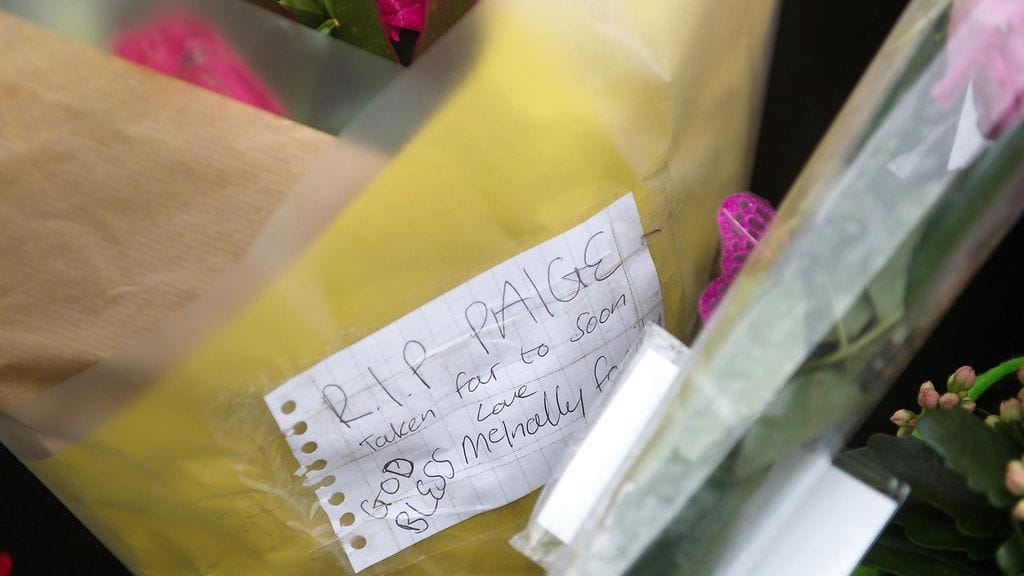 R.I.P PAIGE
Taken far to soon
Love
GOD BLESS
McNally